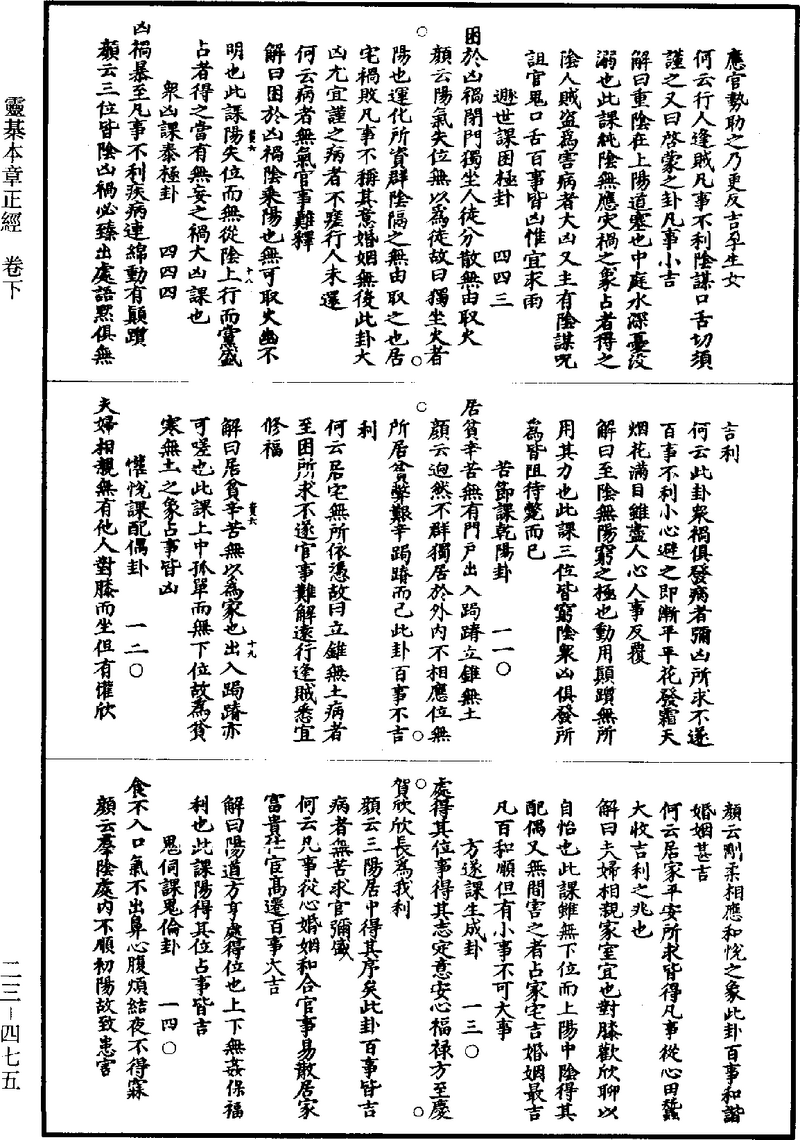 靈棊本章正經　卷下
二三—四七五
應官勢助之乃更反吉孕生女
何云行人逢賊凡事不利陰謀口舌切須
謹之又曰啓蒙之卦凡事小吉
解曰重陰在上陽道塞也中庭水深憂沒
溺也此課純陰無應灾禍之象占者得之
陰人賊盜爲害病者大凶又主有陰謀呪
詛官鬼口舌百事皆凶惟宜求雨
遯世課困極卦　四四三
困於凶禍閉門獨坐人徒分散無由取火
顔云陽氣失位無以爲徒故曰獨坐火者
陽也運化所資群陰隔之無由取之也居
宅禍敗凡事不稱其意婚姻無後此卦大
凶尤宜謹之病者不瘥行人未還
何云病者無氣官事難釋
解曰困於凶禍陰乘陽也無可取火幽不
明也此課陽失位而無從陰上行而黨盛
占者得之當有無妄之禍大凶課也
衆凶課泰極卦　四四四
凶禍暴至凡事不利疾病連綿動有顛躓
顔云三位皆陰凶禍必臻出處語黙俱無
吉利
何云此卦衆禍俱發病者彌凶所求不遂
百事不利小心避之即漸平平花發霜天
烟花滿目雖盡人心人事反覆
解曰至陰無陽窮之極也動用顛躓無所
用其力也此課三位皆窮陰衆凶俱發所
爲皆阻待斃而已
苦節課乾陽卦　一一〇
居貧辛苦無有門戶出入跼蹐立錐無土
顔云逈然不群獨居於外內不相應位無
所居貧弊艱辛跼蹐而已此卦百事不吉
利
何云居宅無所依憑故曰立錐無土病者
至困所求不遂官事難解遠行逢賊悉宜
修福
解曰居貧辛苦無以爲家也出入跼蹐亦
可嗟也此課上中孤單而無下位故爲貧
寒無土之象占事皆凶
懽悅課配偶卦　一二〇
夫婦相親無有他人對膝而坐但有懽欣
顔云剛柔相應和悅之象此卦百事和諧
婚姻甚吉
何云居家平安所求皆得凡事從心田蠶
大收吉利之兆也
解曰夫婦相親家室宜也對膝歡欣聊以
自怡也此課雖無下位而上陽中陰得其
配偶又無間害之者占家宅吉婚姻最吉
凡百和順但有小事不可大事
方遂課生成卦　一三〇
處得其位事得其志定意安心福祿方至慶
賀欣欣長爲我利
顔云三陽居中得其序矣此卦百事皆吉
病者無苦求官彌盛
何云凡事從心婚姻和合官事易散居家
富貴仕官高遷百事大吉
解曰陽道方亨處得位也上下無姦保福
利也此課陽得其位占事皆吉
鬼伺課鬼倫卦　一四〇
食不入口氣不出鼻心腹煩結夜不得寐
顔云羣陰處內不順初陽故致患害